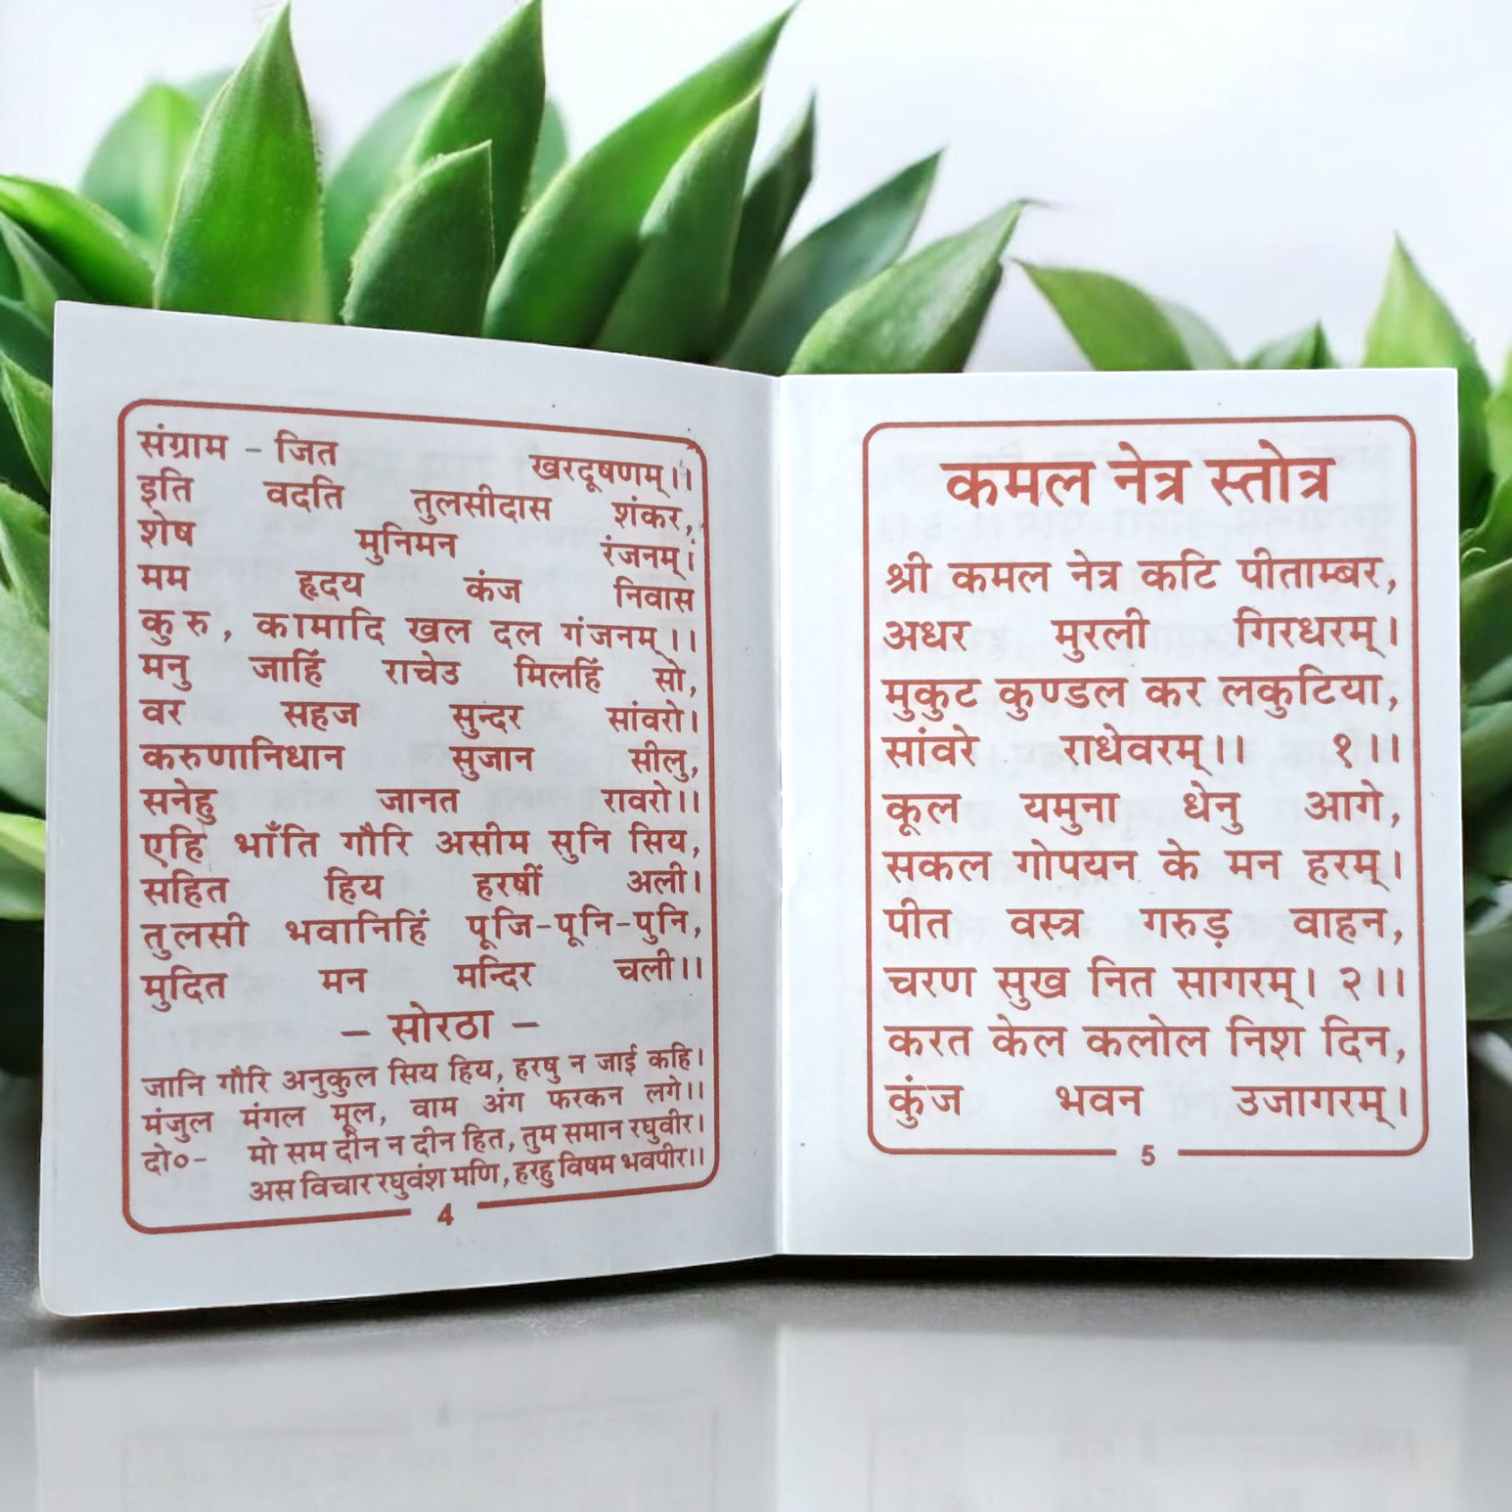 संग्राम - जित खरदूषणम्।।
इति वदति तुलसीदास शंकर,
शेष मुनिमन रंजनम्।
मम हृदय कंज निवास
कुरु, कामादि खल दल गंजनम्।।
मनु जाहिं राचेउ मिलहिं सो,
वर सहज सुन्दर सांवरो।
करुणानिधान सुजान सीलु,
सनेहु जानत रावरो।।
एहि भाँति गौरि असीम सुनि सिय,
सहित हिय हरषीं अली।
तुलसी भवानिहिं पूजि-पूनि-पुनि,
मुदित मन मन्दिर चली।।
- सोरठा -
जानि गौरि अनुकुल सिय हिय, हरषु न जाई कहि।
मंजुल मंगल मूल, वाम अंग फरकन लगे।।
दो०- मो सम दीन न दीन हित, तुम समान रघुवीर।
अस विचार रघुवंश मणि, हरहु विषम भवपीर।।
4
कमल नेत्र स्तोत्र
श्री कमल नेत्र कटि पीताम्बर,
अधर मुरली गिरधरम्।
मुकुट कुण्डल कर लकुटिया,
सांवरे राधेवरम्।। १।।
कूल यमुना धेनु आगे,
सकल गोपयन के मन हरम्।
पीत वस्त्र गरुड़ वाहन,
चरण सुख नित सागरम्। २।।
करत केल कलोल निश दिन,
कुंज भवन उजागरम्।
5